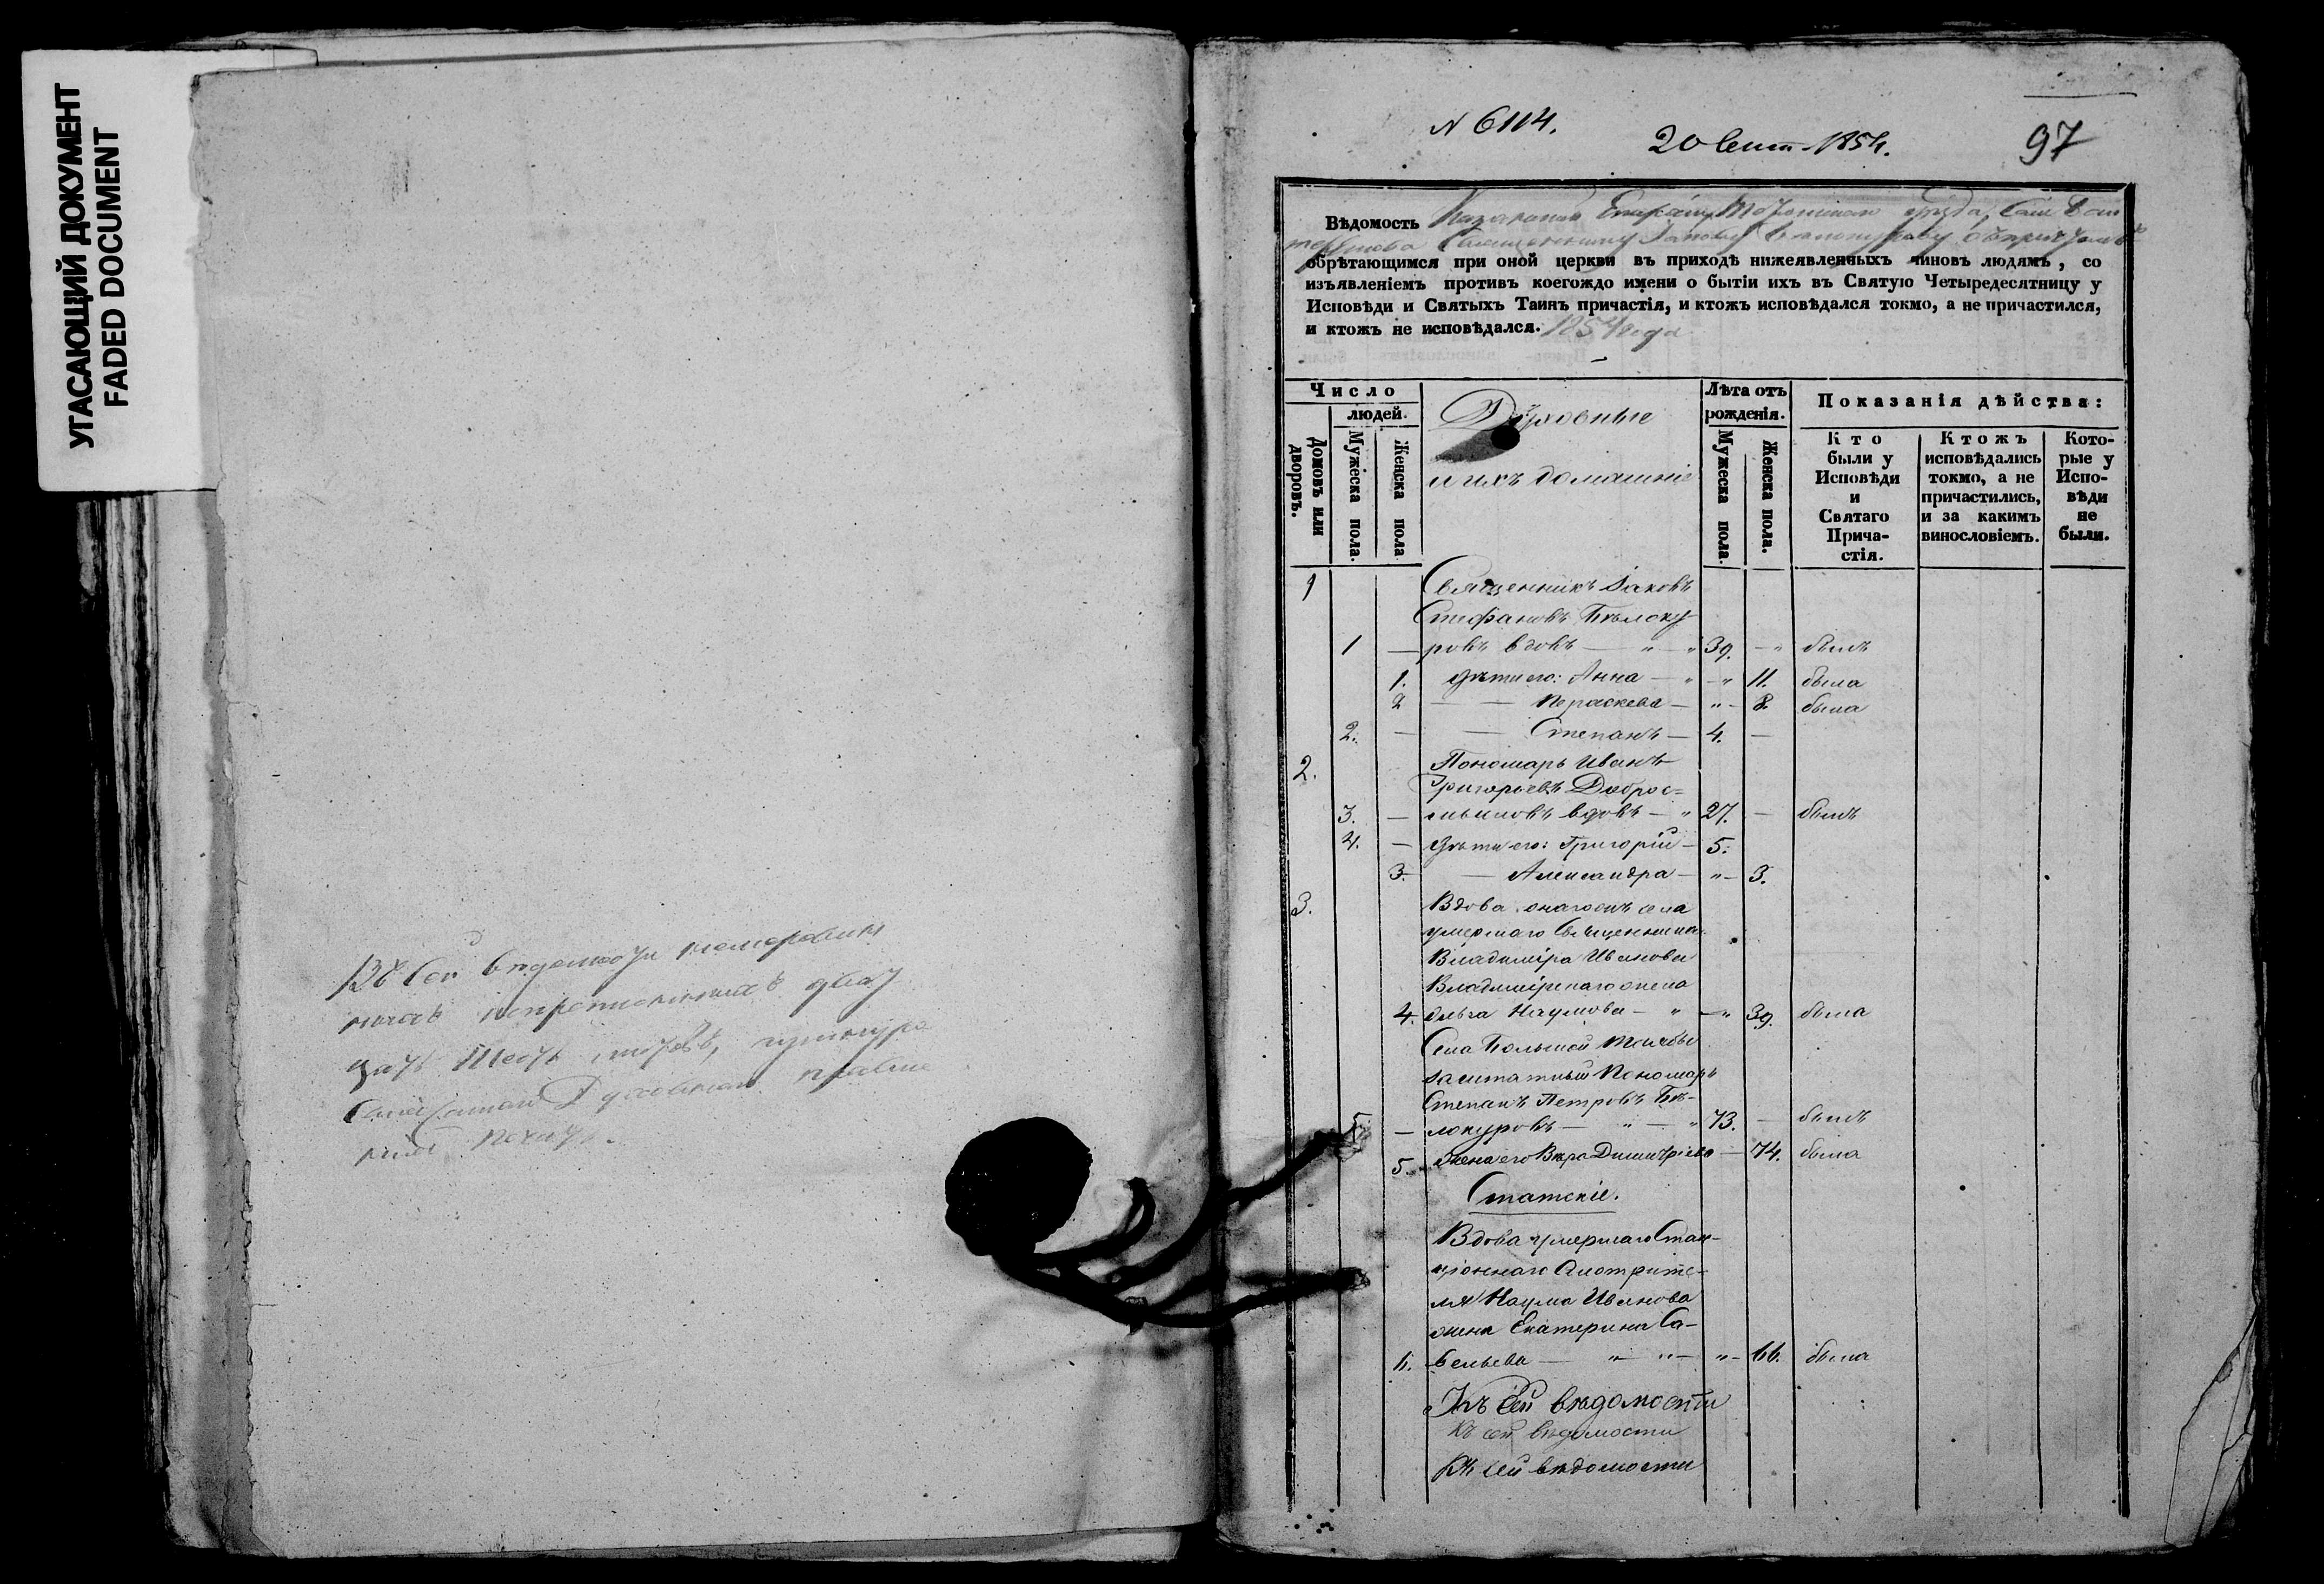 УГАСАЮЩИЙ ДОКУМЕНТ
FADED DOCUMENT
Въ сей ведомости номерован
ныхъ двад
цать шесть
Духовнаго правле
нія
N 6114.
20 Сент. 1854.
97
Вѣдомость Казанской Епархіи уѣзда, Села
Священнику Іакову Белокурову съ причтомъ
обрѣтающимся при оной церкви въ приходѣ нижеявленныхъ чиновъ людямъ, со
изъявленіемъ противъ коегождо имени о бытіи ихъ въ Святую Четыредесятницу у
Исповѣди и Святыхъ Таинъ причастія, и ктожъ исповѣдался токмо, а не причастился,
и ктожъ не исповѣдался. 1854 года
Число
Домовъ или дворовъ.
людей.
Мужеска пола.
Женска пола
Духовные
и ихъ домашніе
Лѣта отъ рожденія.
Мужеска пола.
Женска пола.
Показанія дѣйства:
Кто были у Исповѣди и Святаго Прича-стія.
Ктожъ исповѣдались токмо, а не причастились, и за какимъ винословіемъ.
Кото-рые у Испо-вѣди не были.
1 Священникъ Іаковъ
Стефановъ Бѣлоку
1 — ровъ вдовъ — " — " 39. — " былъ
1. дѣти его: Анна — " — " 11. была
2 — — Параскева — " — 8. была
2. — — Степанъ — 4. —
2. Пономарь Иванъ
Григорьевъ Доброс=
3. — мысловъ вдовъ — " 27. — былъ
4. — дѣти его: Григорій — 5.
3. — Александра — " — 3.
3. Вдова онагожъ села
умершаго Священника
Владиміра Иванова
Владимірскаго жена
4. Ольга Наумова — " — " 39. была
Села Большой
заштатный Пономарь
Степанъ Петровъ Бѣ-
5. — локуровъ — " — " 73. — былъ
5. жена его Вѣра Димитріева — 74. была
Статскіе.
Вдова умершаго Стан-
ціоннаго Смотрите-
ля Наума Иванова
жена Екатерина Са-
6. вельева — " — " — " — 66. была
Къ сей вѣдомости
Къ сей вѣдомости
Къ сей вѣдомости